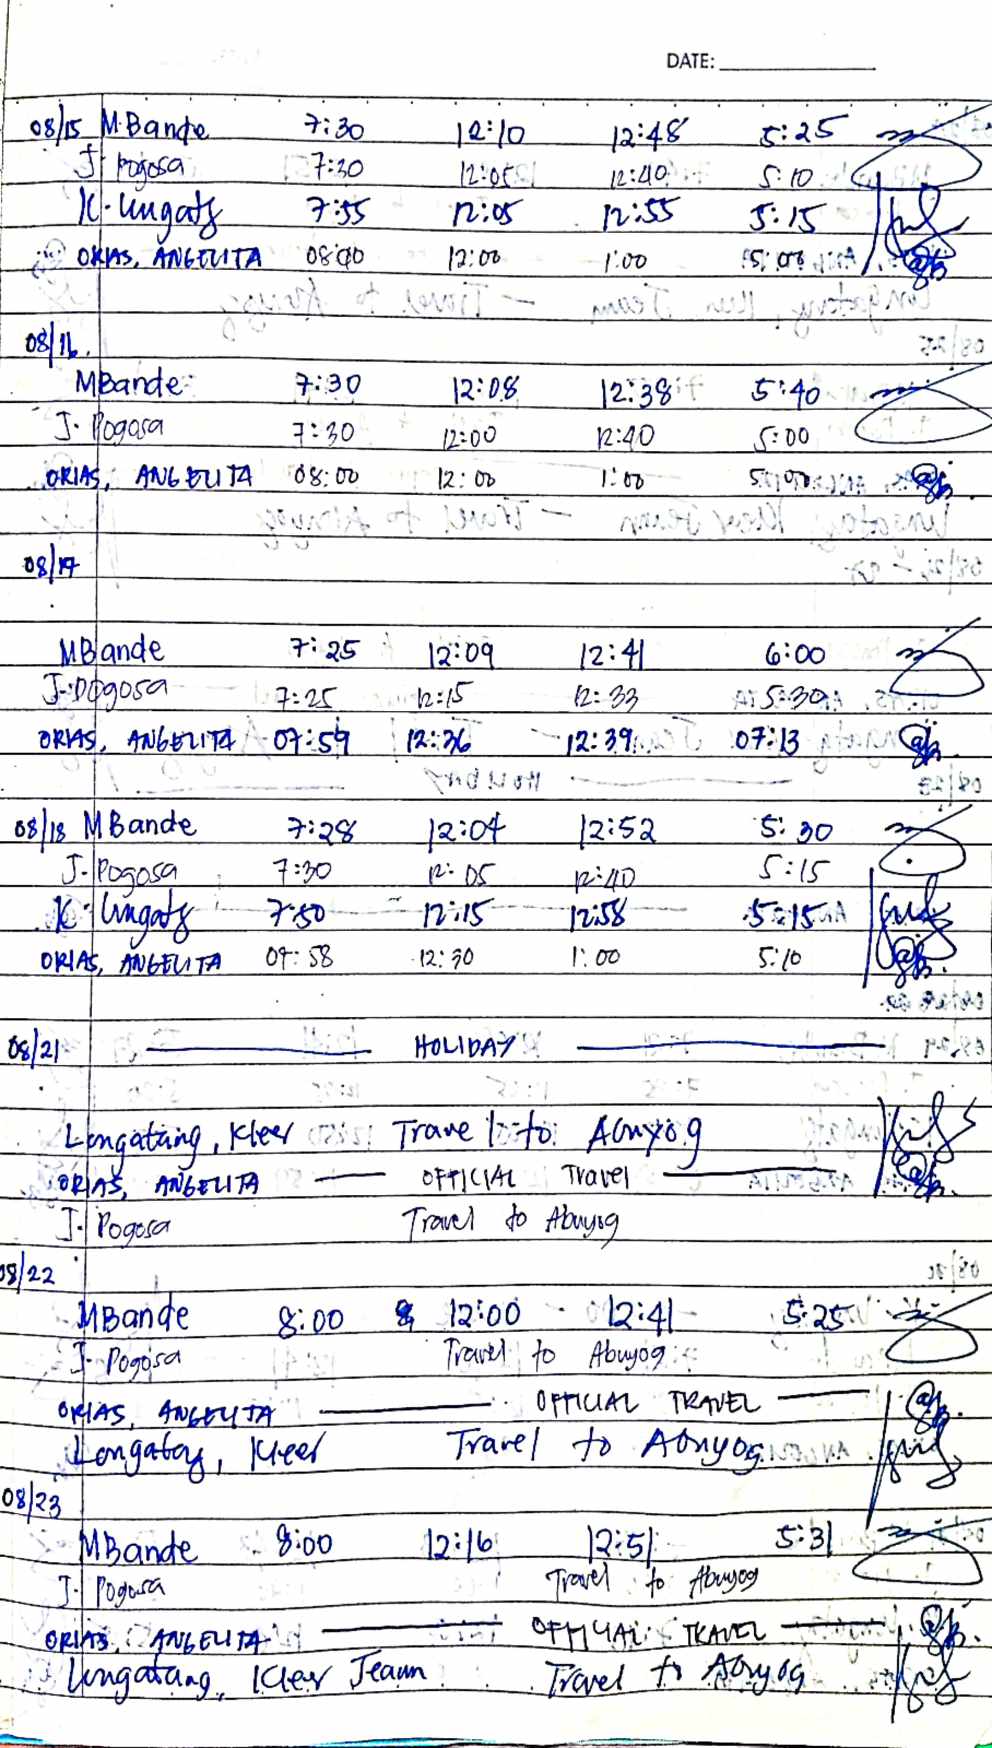 DATE:
08/15 M.Bande 7:30 12:10 12:48 5:25
J. Pogosa 7:30 12:05 12:40 5:10
K. 7:55 12:05 12:55 5:15
ORIAS, ANGELITA 08:00 12:00 1:00 5:00
08/16.
MBande 7:30 12:08 12:38 5:40
J. Pogosa 7:30 12:00 12:40 5:00
ORIAS, ANGELITA 08:00 12:00 1:00 5:00
08/17
MBande 7:25 12:09 12:41 6:00
J. Pogosa 7:25 12:15 12:33 5:30
ORIAS, ANGELITA 07:59 12:36 12:39 07:13
08/18 MBande 7:28 12:04 12:52 5:30
J. Pogosa 7:30 12:05 12:40 5:15
K. 7:50 12:15 12:58 5:15
ORIAS, ANGELITA 07:58 12:30 1:00 5:10
08/21 HOLIDAY
Kleer Travel to Abuyog
ORIAS, ANGELITA OFFICIAL Travel
J. Pogosa Travel to Abuyog
08/22
MBande 8:00 12:00 12:41 5:25
J. Pogosa Travel to Abuyog
ORIAS, ANGELITA OFFICIAL TRAVEL
Kleer Travel to Abuyog
08/23
MBande 8:00 12:16 12:51 5:31
J. Pogosa Travel to Abuyog
ORIAS, ANGELITA OFFICIAL TRAVEL
Kleer Jeann Travel to Abuyog